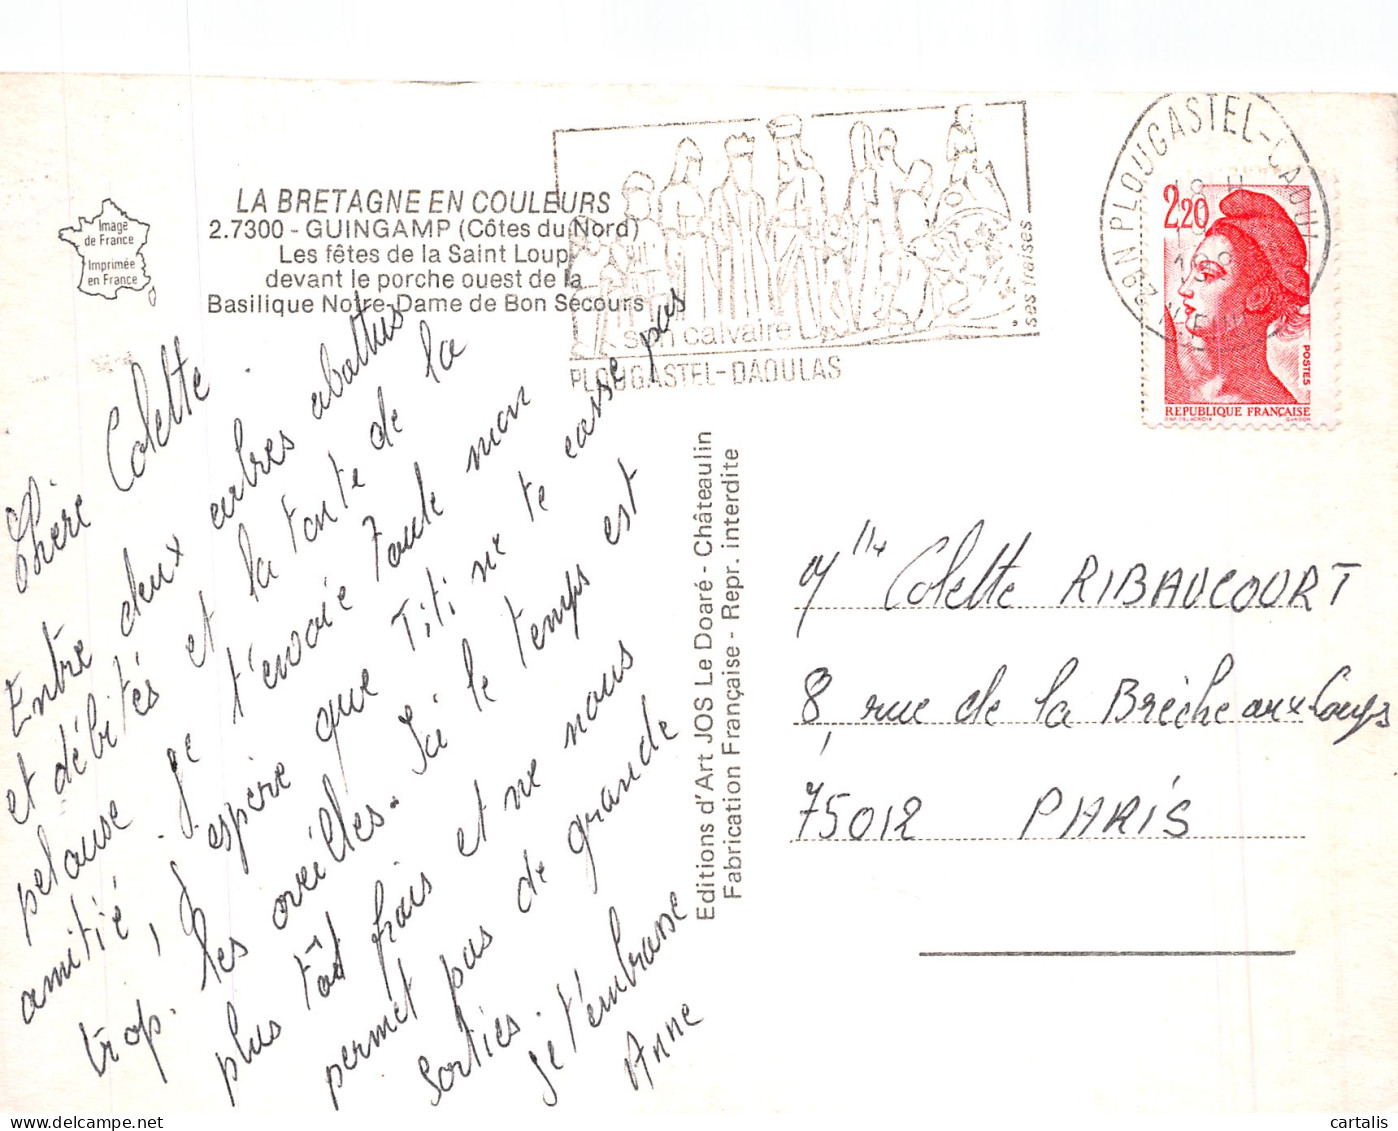 Image
de France
Imprimée
en France
LA BRETAGNE EN COULEURS
2.7300 - GUINGAMP (Côtes du Nord)
Les fêtes de la Saint Loup
devant le porche ouest de la
Basilique Notre-Dame de Bon Secours
son calvaire
ses fraises
PLOUGASTEL-DAOULAS
29N PLOUGASTEL-DAOUL
2,20
POSTES
REPUBLIQUE FRANÇAISE
Chère Colette
Entre deux arbres abattus
et débités et la tonte de la
pelouse je t'envoie toute mon
amitié, j'espère que Titi ne te casse pas
trop les oreilles. Ici le temps est
plus tôt frais et ne nous
permet pas de grande
sorties.
je t'embrasse
Anne
Editions d'Art JOS Le Doaré - Châteaulin
Fabrication Française - Repr. interdite
Mlle Colette RIBAUCOURT
8, rue de la Brèche aux Loups
75012 PARIS
cartalis